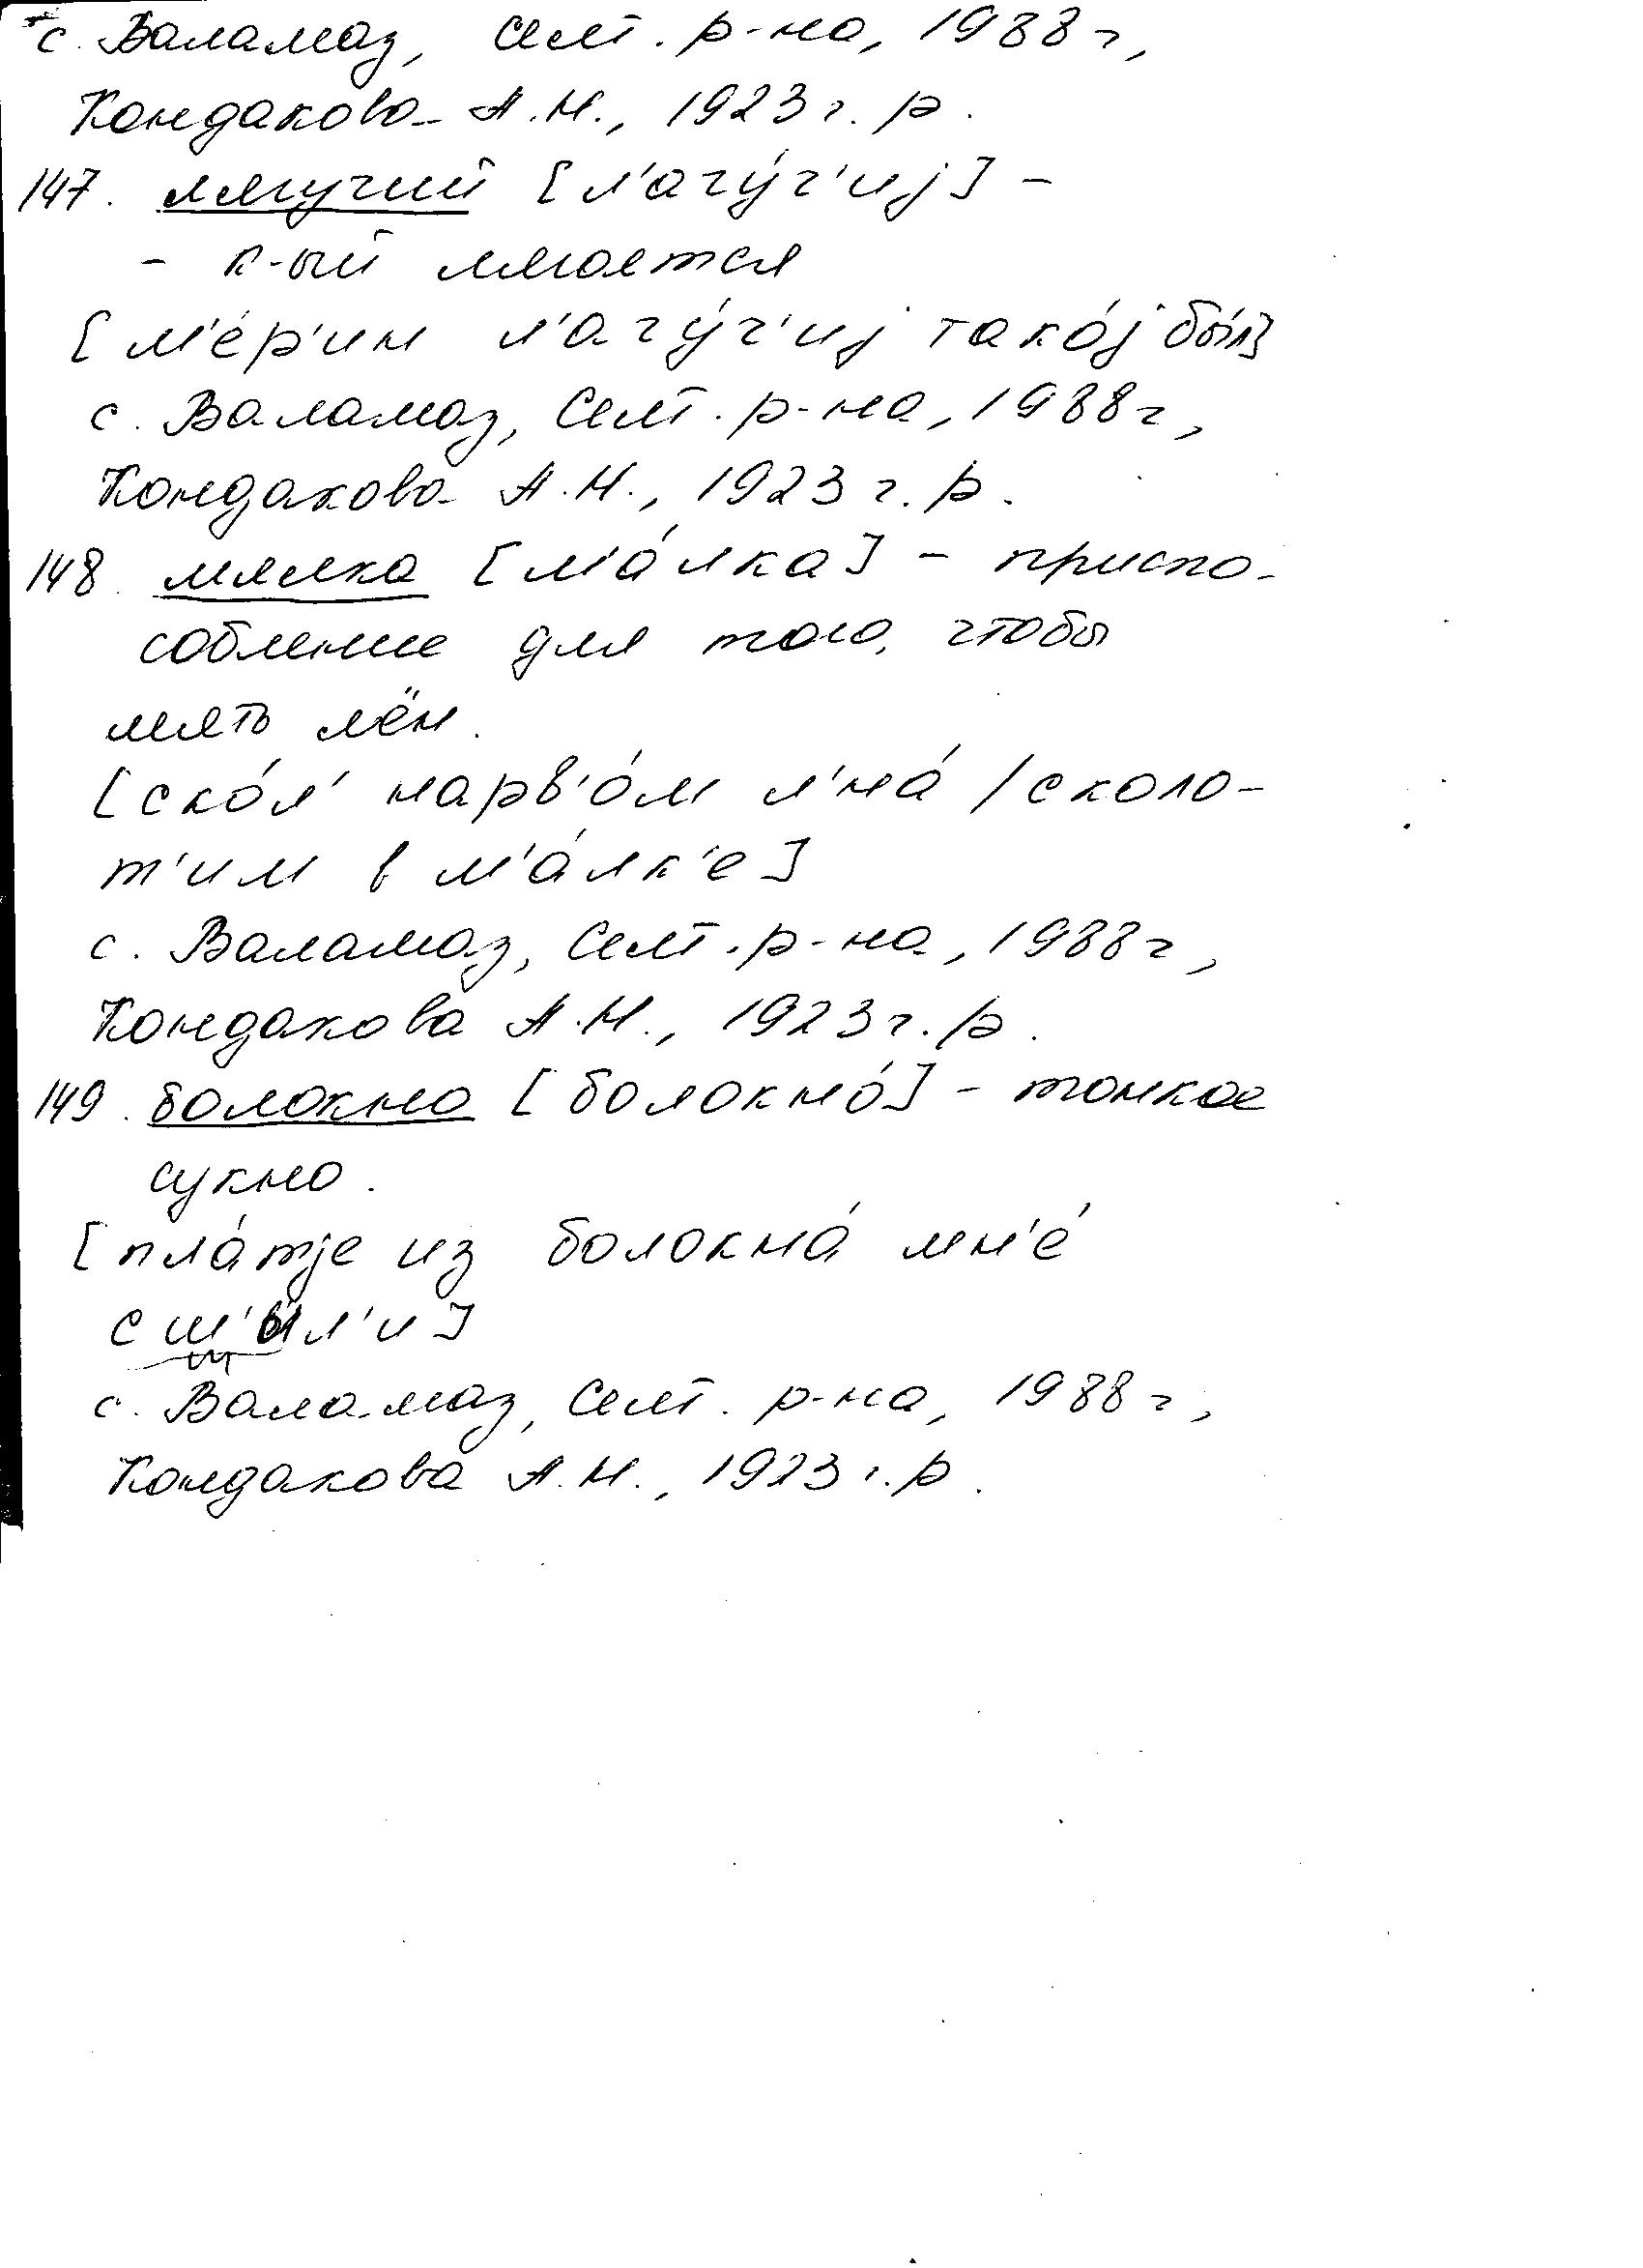 с. Валамаз, Селт. р-на, 1988 г,
Кондакова А.Н., 1923 г. р.
147. лягучий [л'агу́ч'иj] –
– к-ый лягается
[м'е́р'ин л'агу́ч'иj тако́j бы́л]
с. Валамаз, Селт. р-на, 1988 г,
Кондакова А.Н., 1923 г. р.
148. мялка [м'а́лка] – приспо-
собление для того, чтобы
мять лён.
[ско́л' нарв'о́м л'на́ / сколо-
т'им в м'а́лк'е]
с. Валамаз, Селт. р-на, 1988 г,
Кондакова А.Н., 1923 г. р.
149. болокно [болокно́] – тонкое
сукно.
[пла́тjе из болокна́ мн'е́
сшы́л'и]
щ
с. Валамаз, Селт. р-на, 1988 г,
Кондакова А.Н., 1923 г. р.